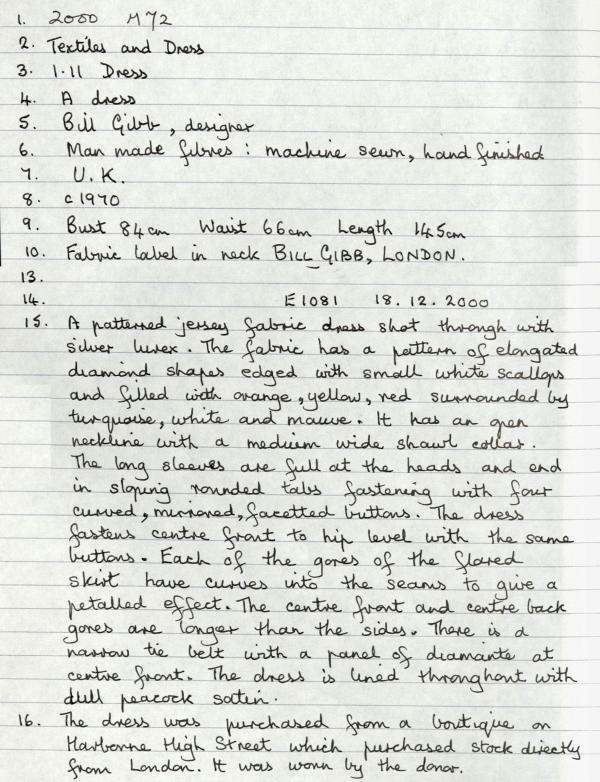 1. 2000 M72
2. Textiles and Dress
3. 1.11 Dress
4. A dress
5. Bill Gibb, designer
6. Man made fibres : machine sewn, hand finished
7. U.K.
8. c1970
9. Bust 84cm Waist 66cm Length 145cm
10. Fabric label in neck BILL GIBB, LONDON.
13.
14. E1081 18.12.2000
15. A patterned jersey fabric dress shot through with
silver lurex. The fabric has a pattern of elongated
diamond shapes edged with small white scallops
and filled with orange, yellow, red surrounded by
turquoise, white and mauve. It has an open
neckline with a medium wide shawl collar.
The long sleeves are full at the heads and end
in sloping rounded tabs fastening with four
curved, mirrored, facetted buttons. The dress
fastens centre front to hip level with the same
buttons. Each of the gores of the flared
skirt have curves into the seams to give a
petalled effect. The centre front and centre back
gores are longer than the sides. There is a
narrow tie belt with a panel of diamante at
centre front. The dress is lined throughout with
dull peacock satin.
16. The dress was purchased from a boutique on
Harborne High Street which purchased stock directly
from London. It was worn by the donor.